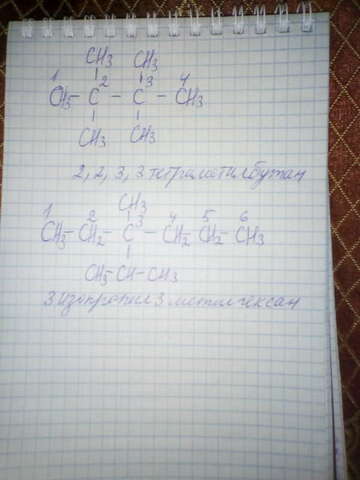 CH3 CH3
1 2 3 4
CH3 - C - C - CH3
CH3 CH3
2, 2, 3, 3 тетраметилбутан
CH3
1 2 3 4 5 6
CH3 - CH2 - C - CH2 - CH2 - CH3
CH3 - CH - CH3
3 изопропил 3 метилгексан